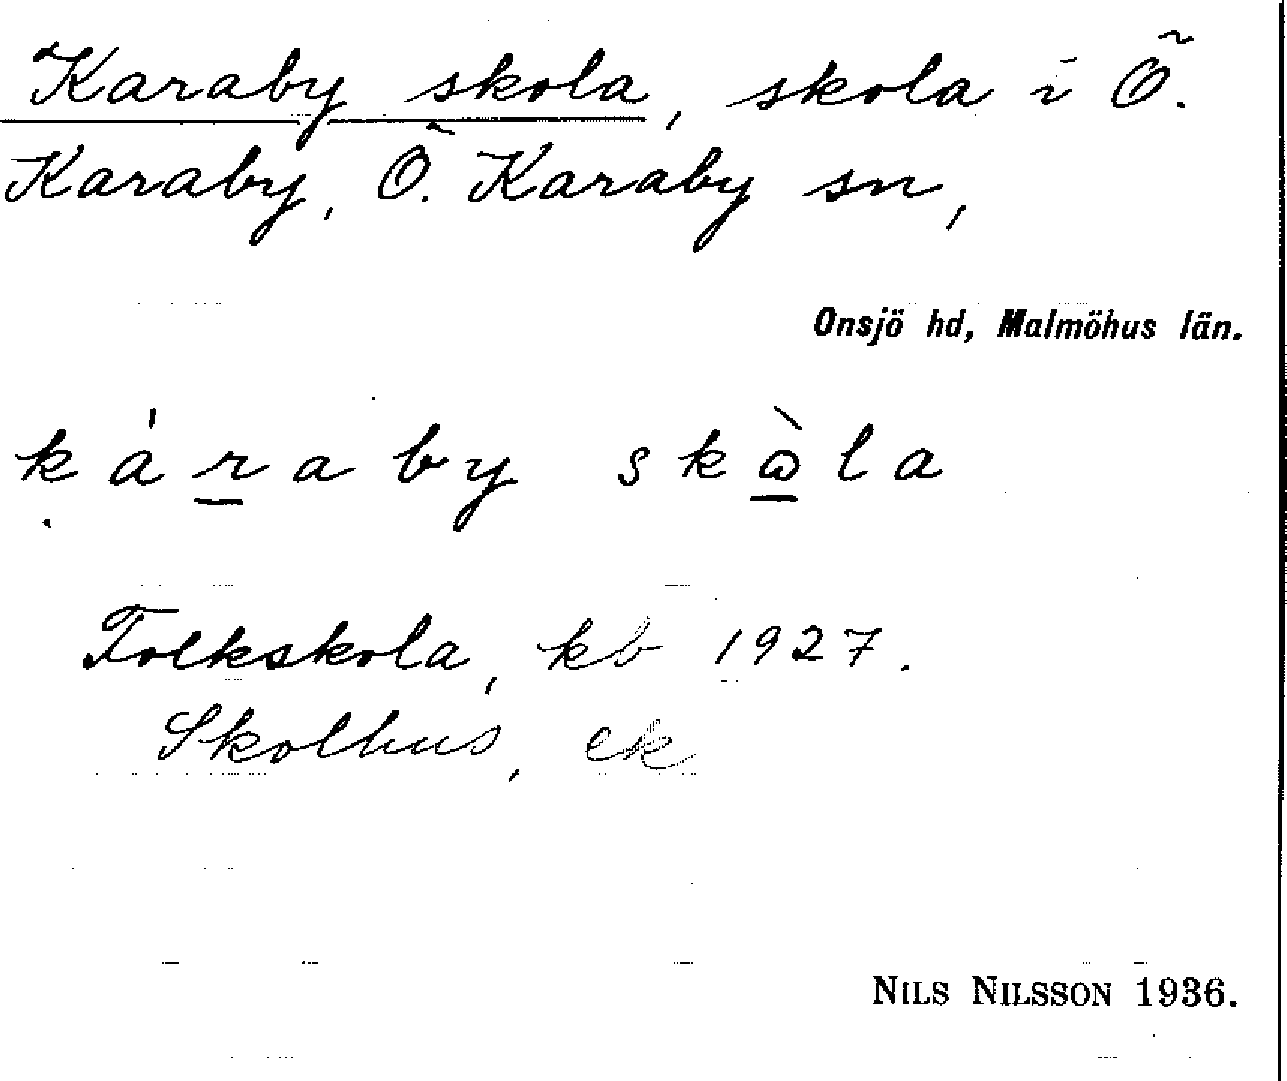 Karaby skola, skola i Ö.
Karaby, Ö. Karaby sn,
Onsjö hd, Malmöhus län.
káraby skὼla
Folkskola, kb 1927.
Skolhus, ek
NILS NILSSON 1936.